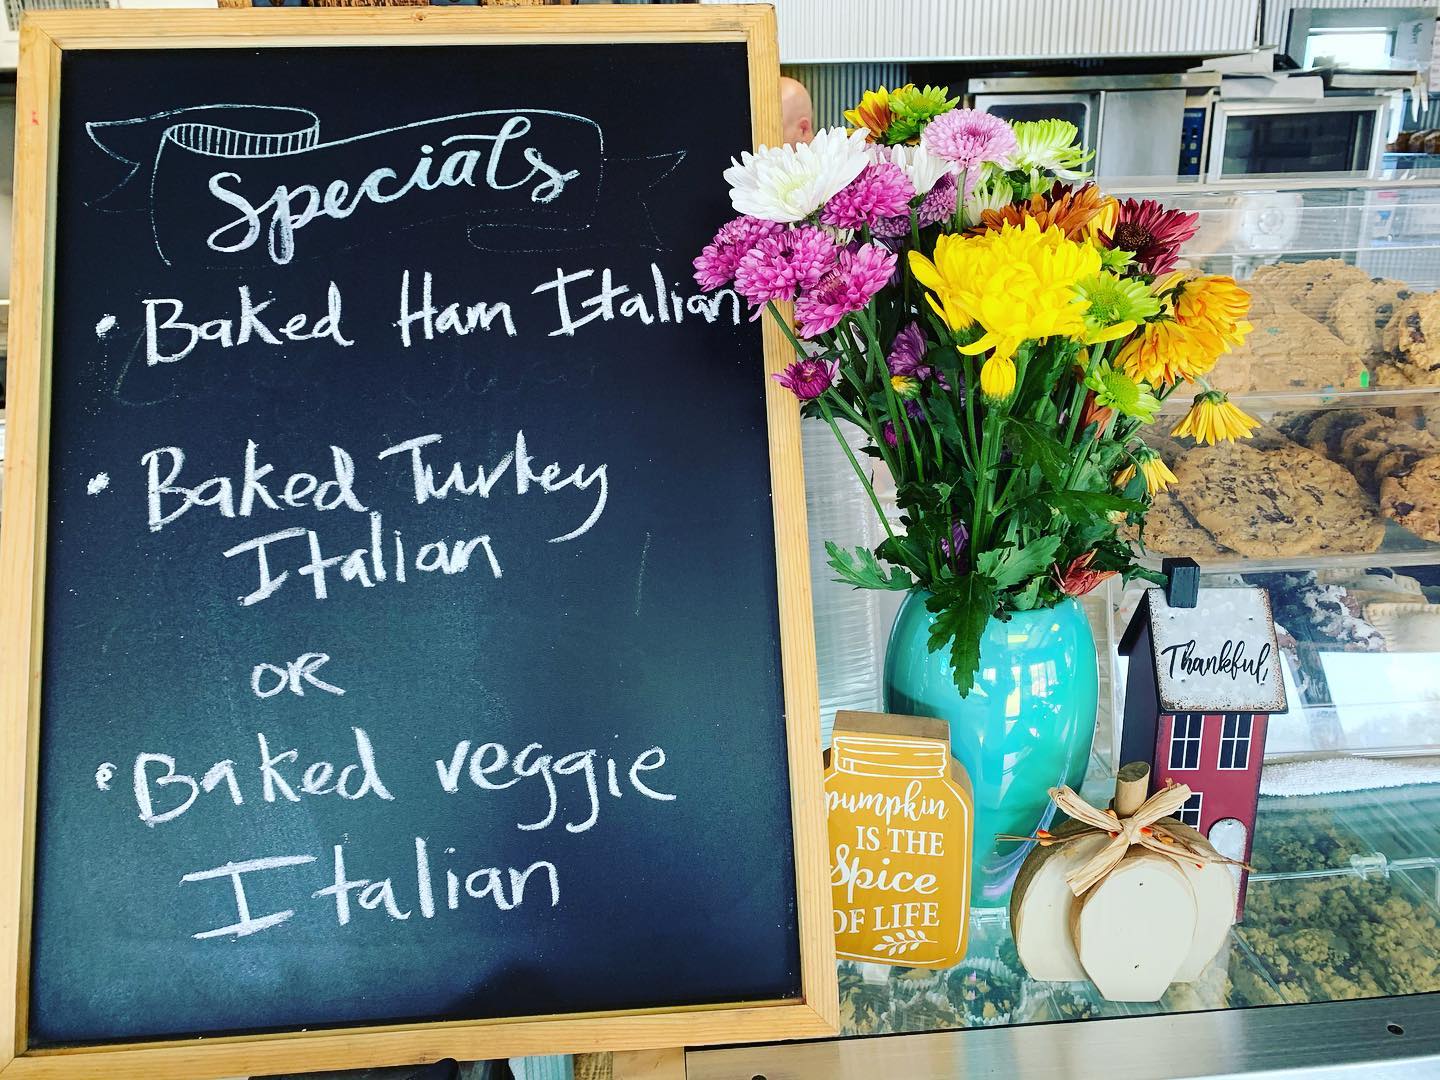 Specials
• Baked Ham Italian
• Baked Turkey
Italian
OR
• Baked veggie
Italian
Thankful,
pumpkin
IS THE
Spice
OF LIFE